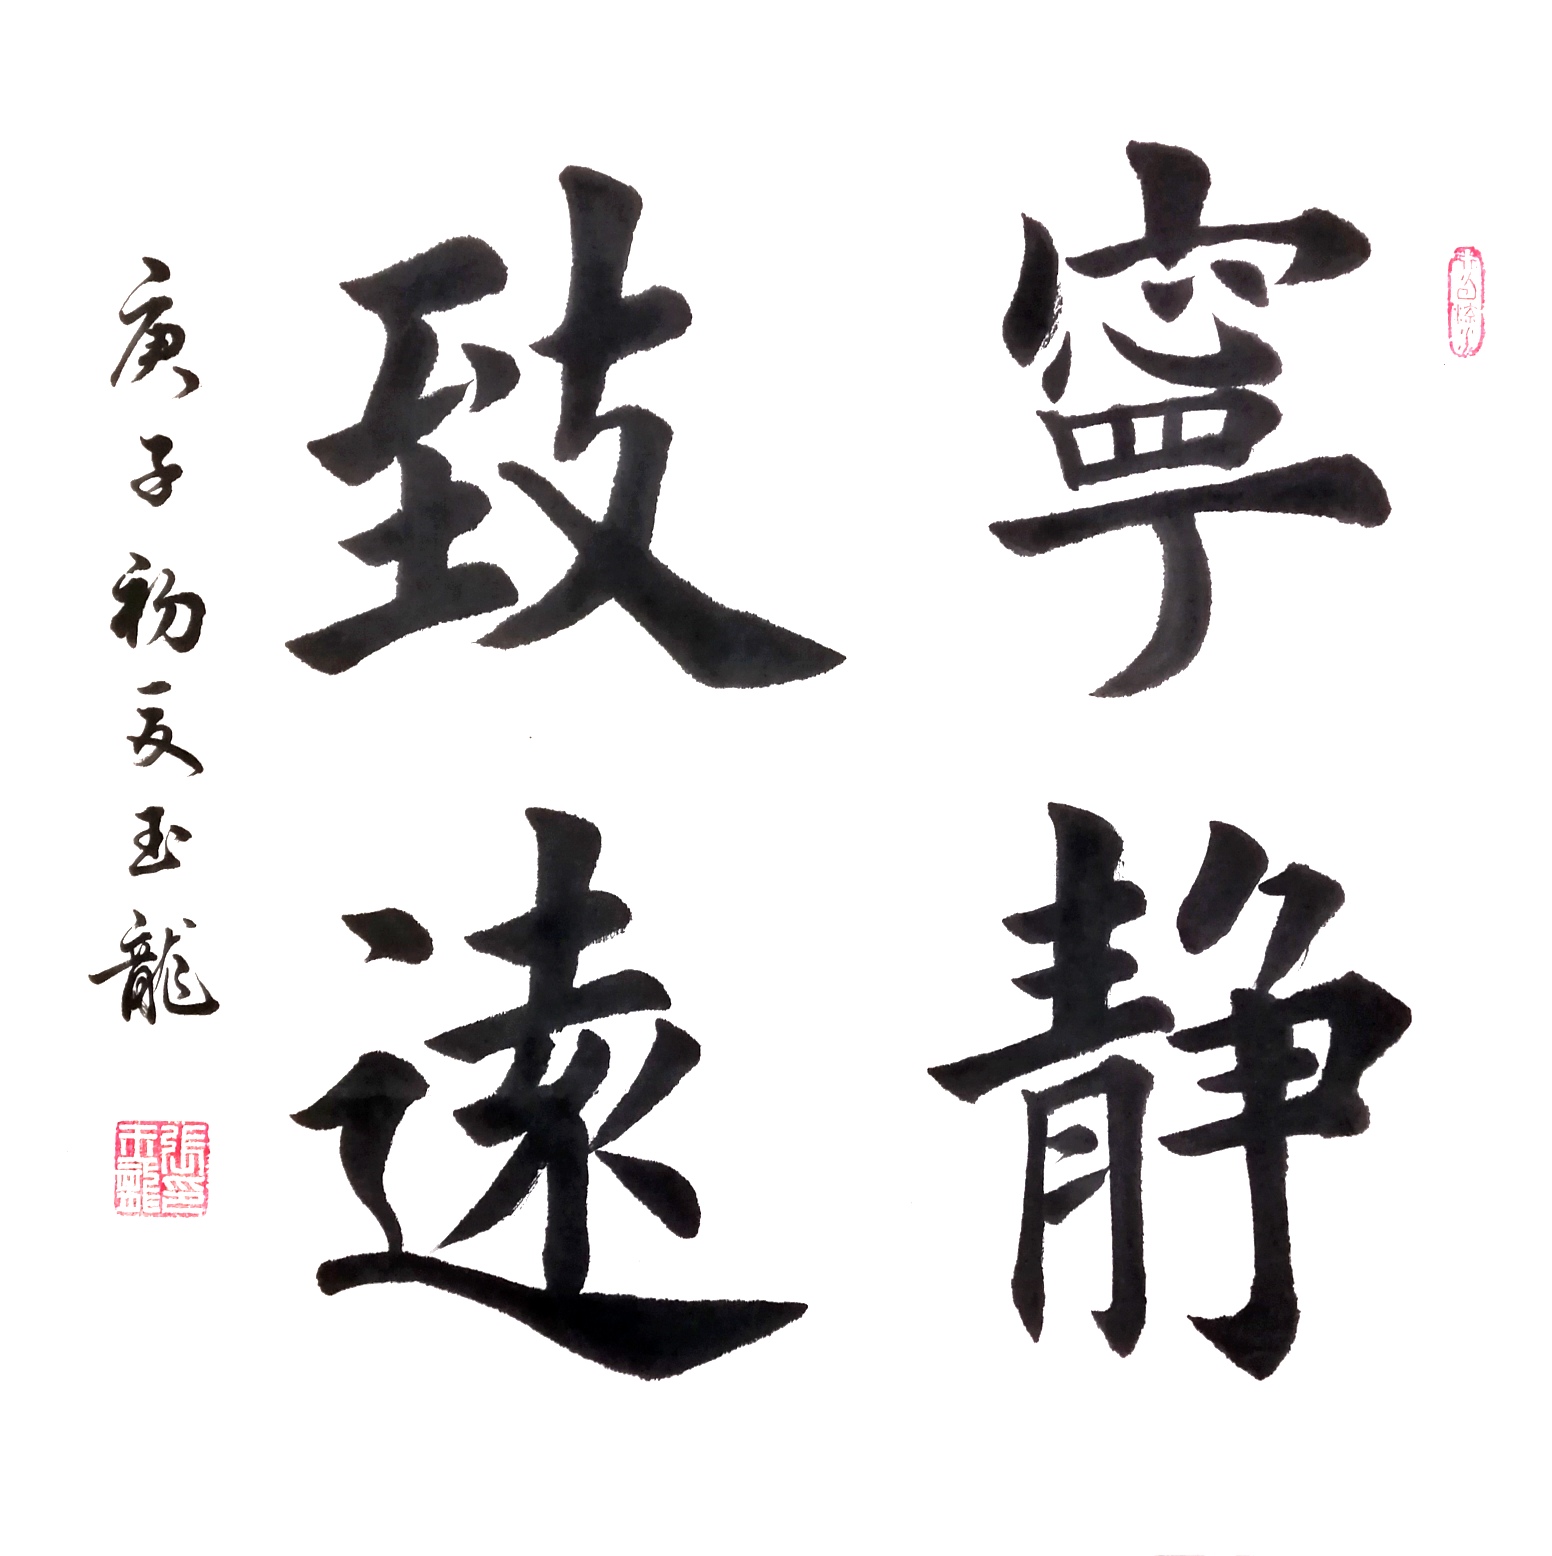 寧静
致遠
庚子初夏玉龍
張印
玉龍